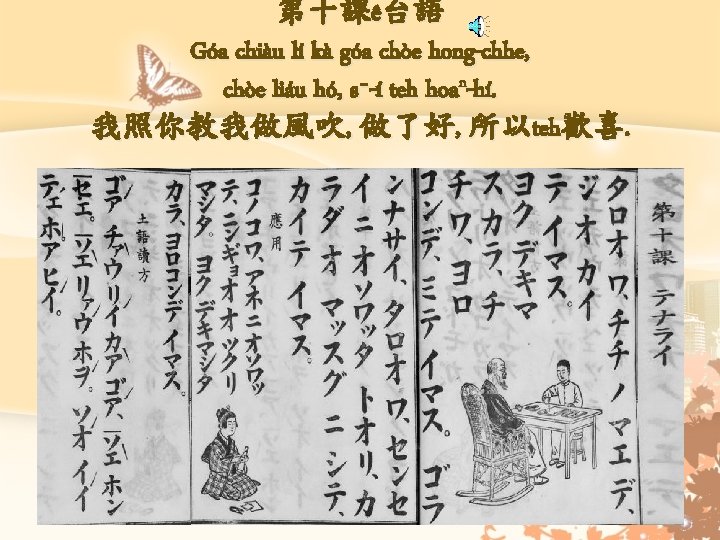 第十課ê台語
Góa chiàu lí kà góa chòe hong-chhe,
chòe liáu hó, s⁻-í teh hoaⁿ-hí.
我照你教我做風吹, 做了好, 所以teh歡喜.
第十課 テナライ
タロオ ワ、チチ ノ マエ デ、
ジ オ カイ
テ イマス。
ヨク デキマ
ス カラ、チ
チ ワ、ヨロ
コンデ、ミテ イマス。ゴラ
ンナサイ、タロオ ワ、センセ
イ ニ オソワッタ トオリ、カ
ラダ オ マッスグ ニ シテ、
カイテ イマス。
應用
コノコ ワ、アネ ニ オソワッ
テ、ニンギョオ オ ツクリ
マシタ。ヨク デキマシタ
カラ、ヨロコンデ イマス。
土語讀方
ゴア チァウ リイ カア ゴア、ソエ ホン
セエ。ソエ リァウ ホヲ。ソオ イイ
テェ ホア ヒイ。